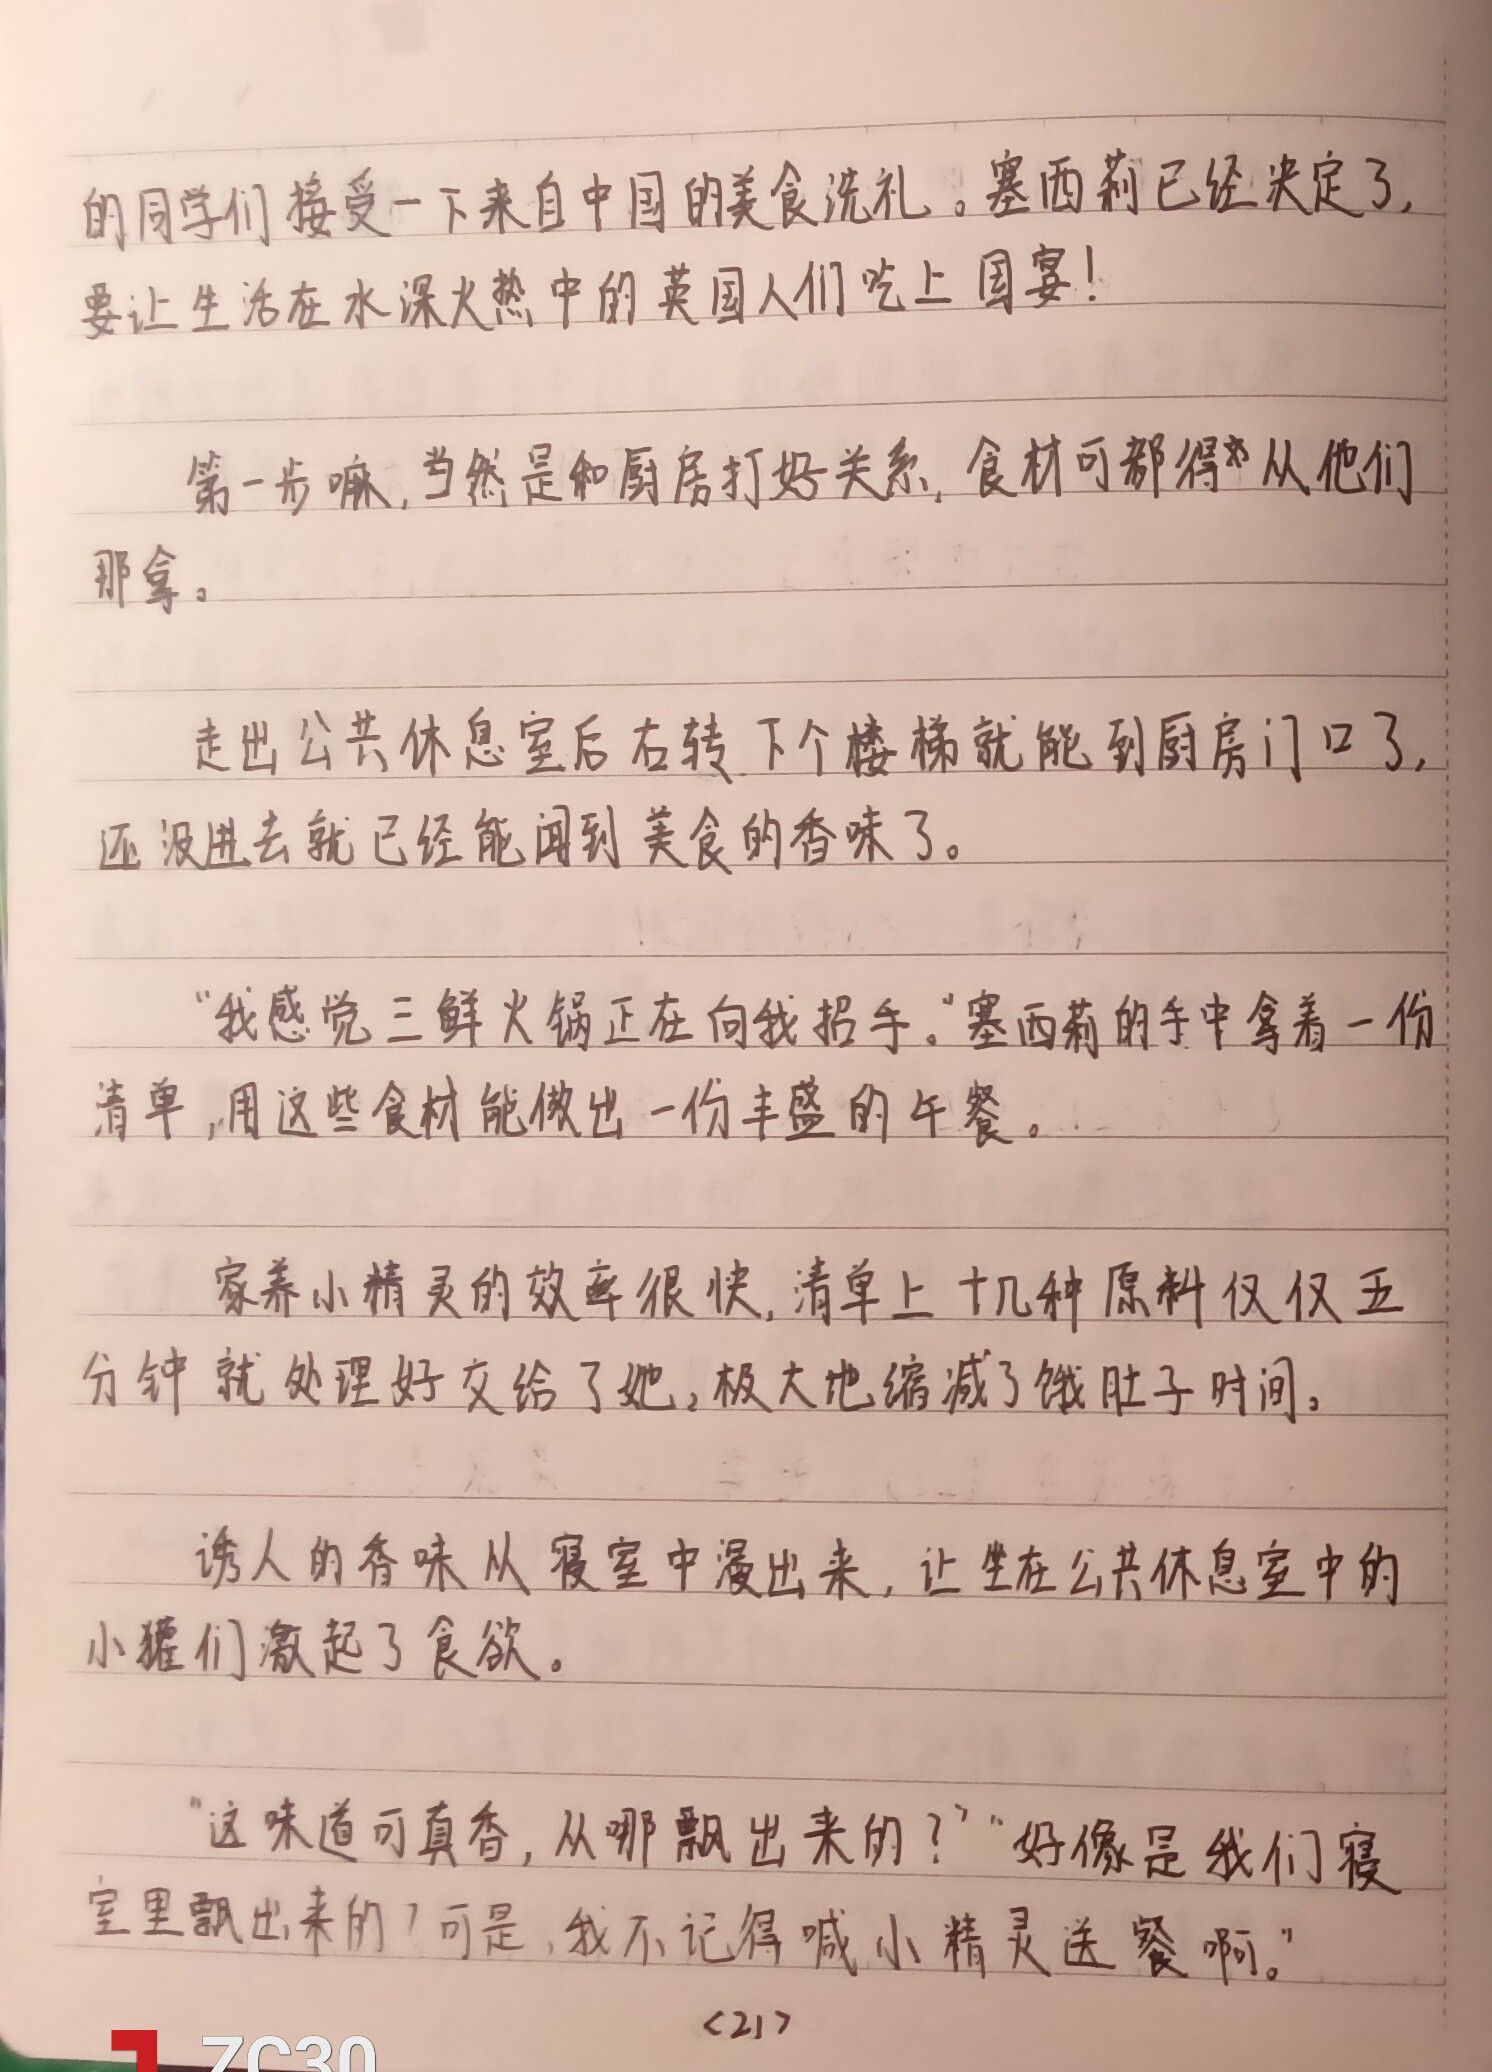 的同学们接受一下来自中国的美食洗礼。塞西莉已经决定了,
要让生活在水深火热中的英国人们吃上国宴!
第一步嘛,当然是和厨房打好关系,食材可都得从他们
那拿。
走出公共休息室后右转下个楼梯就能到厨房门口了,
还没进去就已经能闻到美食的香味了。
“我感觉三鲜火锅正在向我招手。”塞西莉的手中拿着一份
清单,用这些食材能做出一份丰盛的午餐。
家养小精灵的效率很快,清单上十几种原料仅仅五
分钟就处理好交给了她,极大地缩减了饿肚子时间。
诱人的香味从寝室中漫出来,让坐在公共休息室中的
小獾们激起了食欲。
“这味道可真香,从哪飘出来的?”“好像是我们寝
室里飘出来的?可是,我不记得喊小精灵送餐啊。”
<21>
ZC30